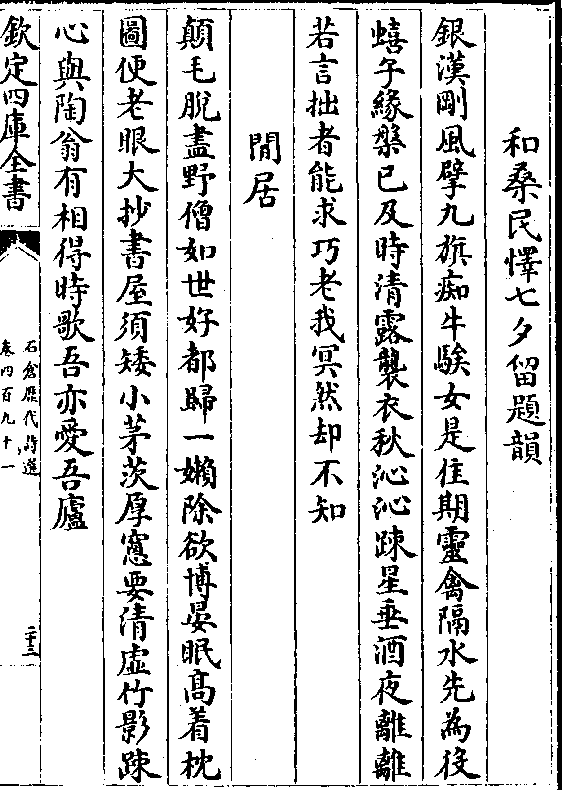 和桑民懌七夕留題韻
銀漢剛風擘九旗痴牛騃女是佳期靈禽隔水先為役
蟢子緣槃已及時清露襲衣秋沁沁踈星垂酒夜離離
若言拙者能求巧老我冥然却不知
閒居
顛毛脫盡野僧如世好都歸一嬾除欲博晏眠髙着枕
圖便老眼大抄書屋須矮小茅茨厚窻要清虚竹影踈
心與陶翁有相得時歌吾亦愛吾廬
欽定四庫全書
石倉歴代詩選
卷四百九十一
二十三